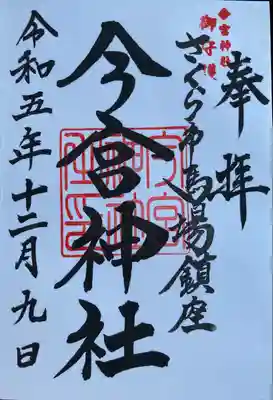 奉拝
今宮神社
御子頒
さくら市馬場鎮座
今宮神社
令和五年十二月九日